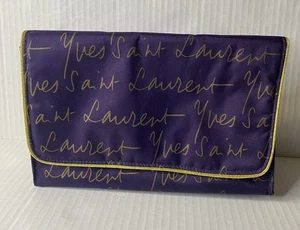 Yves Saint Laurent
Laurent Yves Saint
Saint Laurent Yves S
Laurent Yves Saint
Yves Saint Laurent
Laurent Yves Saint